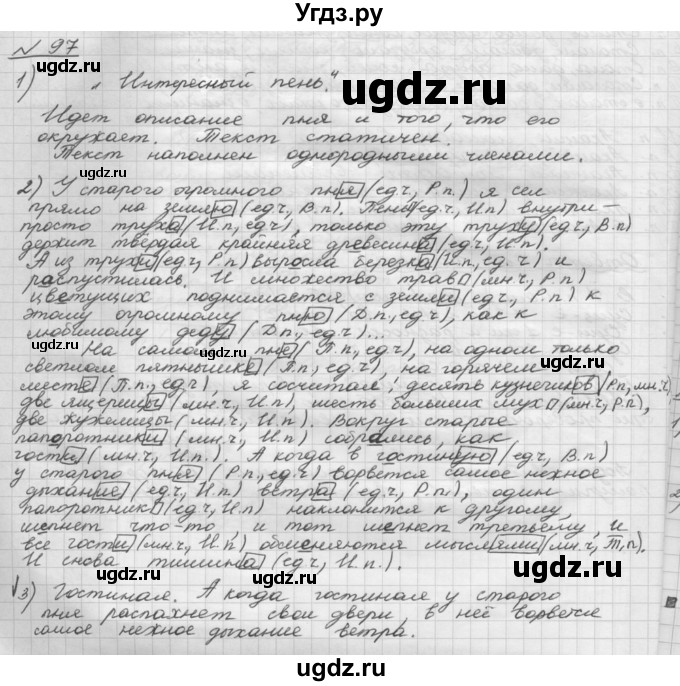 Угдз.ру
№ 97
1) „ Интересный пень."
ugdz.ru
ugdz.ru
Идет описание пня и того, что его
окружает. Текст статичен.
Текст наполнен однородными членами.
ugdz.ru
2) У старого огромного пня (ед.ч, Р.п.) я сел
прямо на землю (ед.ч, В.п.). Пень (ед.ч, И.п) внутри –
просто труха (И.п, ед.ч), только эту труху (ед.ч, В.п)
держит твёрдая крайняя древесина (ед.ч, И.п).
ugdz.ru
А из трухи (ед.ч, Р.п) выросла березка (И.п, ед.ч) и
распустилась. И множество трав (мн.ч, Р.п)
цветущих поднимается с земли (ед.ч, Р.п) к
этому огромному пню (Д.п, ед.ч), как к
любимому деду (Д.п, ед.ч)...
ugdz.ru
На самом пне (П.п, ед.ч), на одном только
светлом пятнышке (ед.ч, П.п), на горячем
ugdz.ru
месте (П.п, ед.ч), я сосчитала: десять кузнечиков (Р.п, мн.ч),
две ящерицы (мн.ч, И.п), шесть больших мух (мн.ч, Р.п),
две жужелицы (мн.ч, И.п). Вокруг старые
папоротники (мн.ч, И.п) собрались, как
ugdz.ru
гости (мн.ч, И.п.). А когда в гостиную (ед.ч, В.п)
у старого пня (Р.п, ед.ч) ворвётся самое нежное
дыхание (ед.ч, И.п) ветра (ед.ч, Р.п.), один
папоротник (ед.ч, И.п) наклонится к другому,
шепнет что-то, и тот шепнет третьему, и
все гости (мн.ч, И.п) обменяются мыслями (мн.ч, Т.п).
И снова тишина (ед.ч, И.п.).
ugdz.ru
3) Гостиная. А когда гостиная у старого
пня распахнет свои двери, в неё ворвется
самое нежное дыхание ветра.
ugdz.ru
ugdz.ru